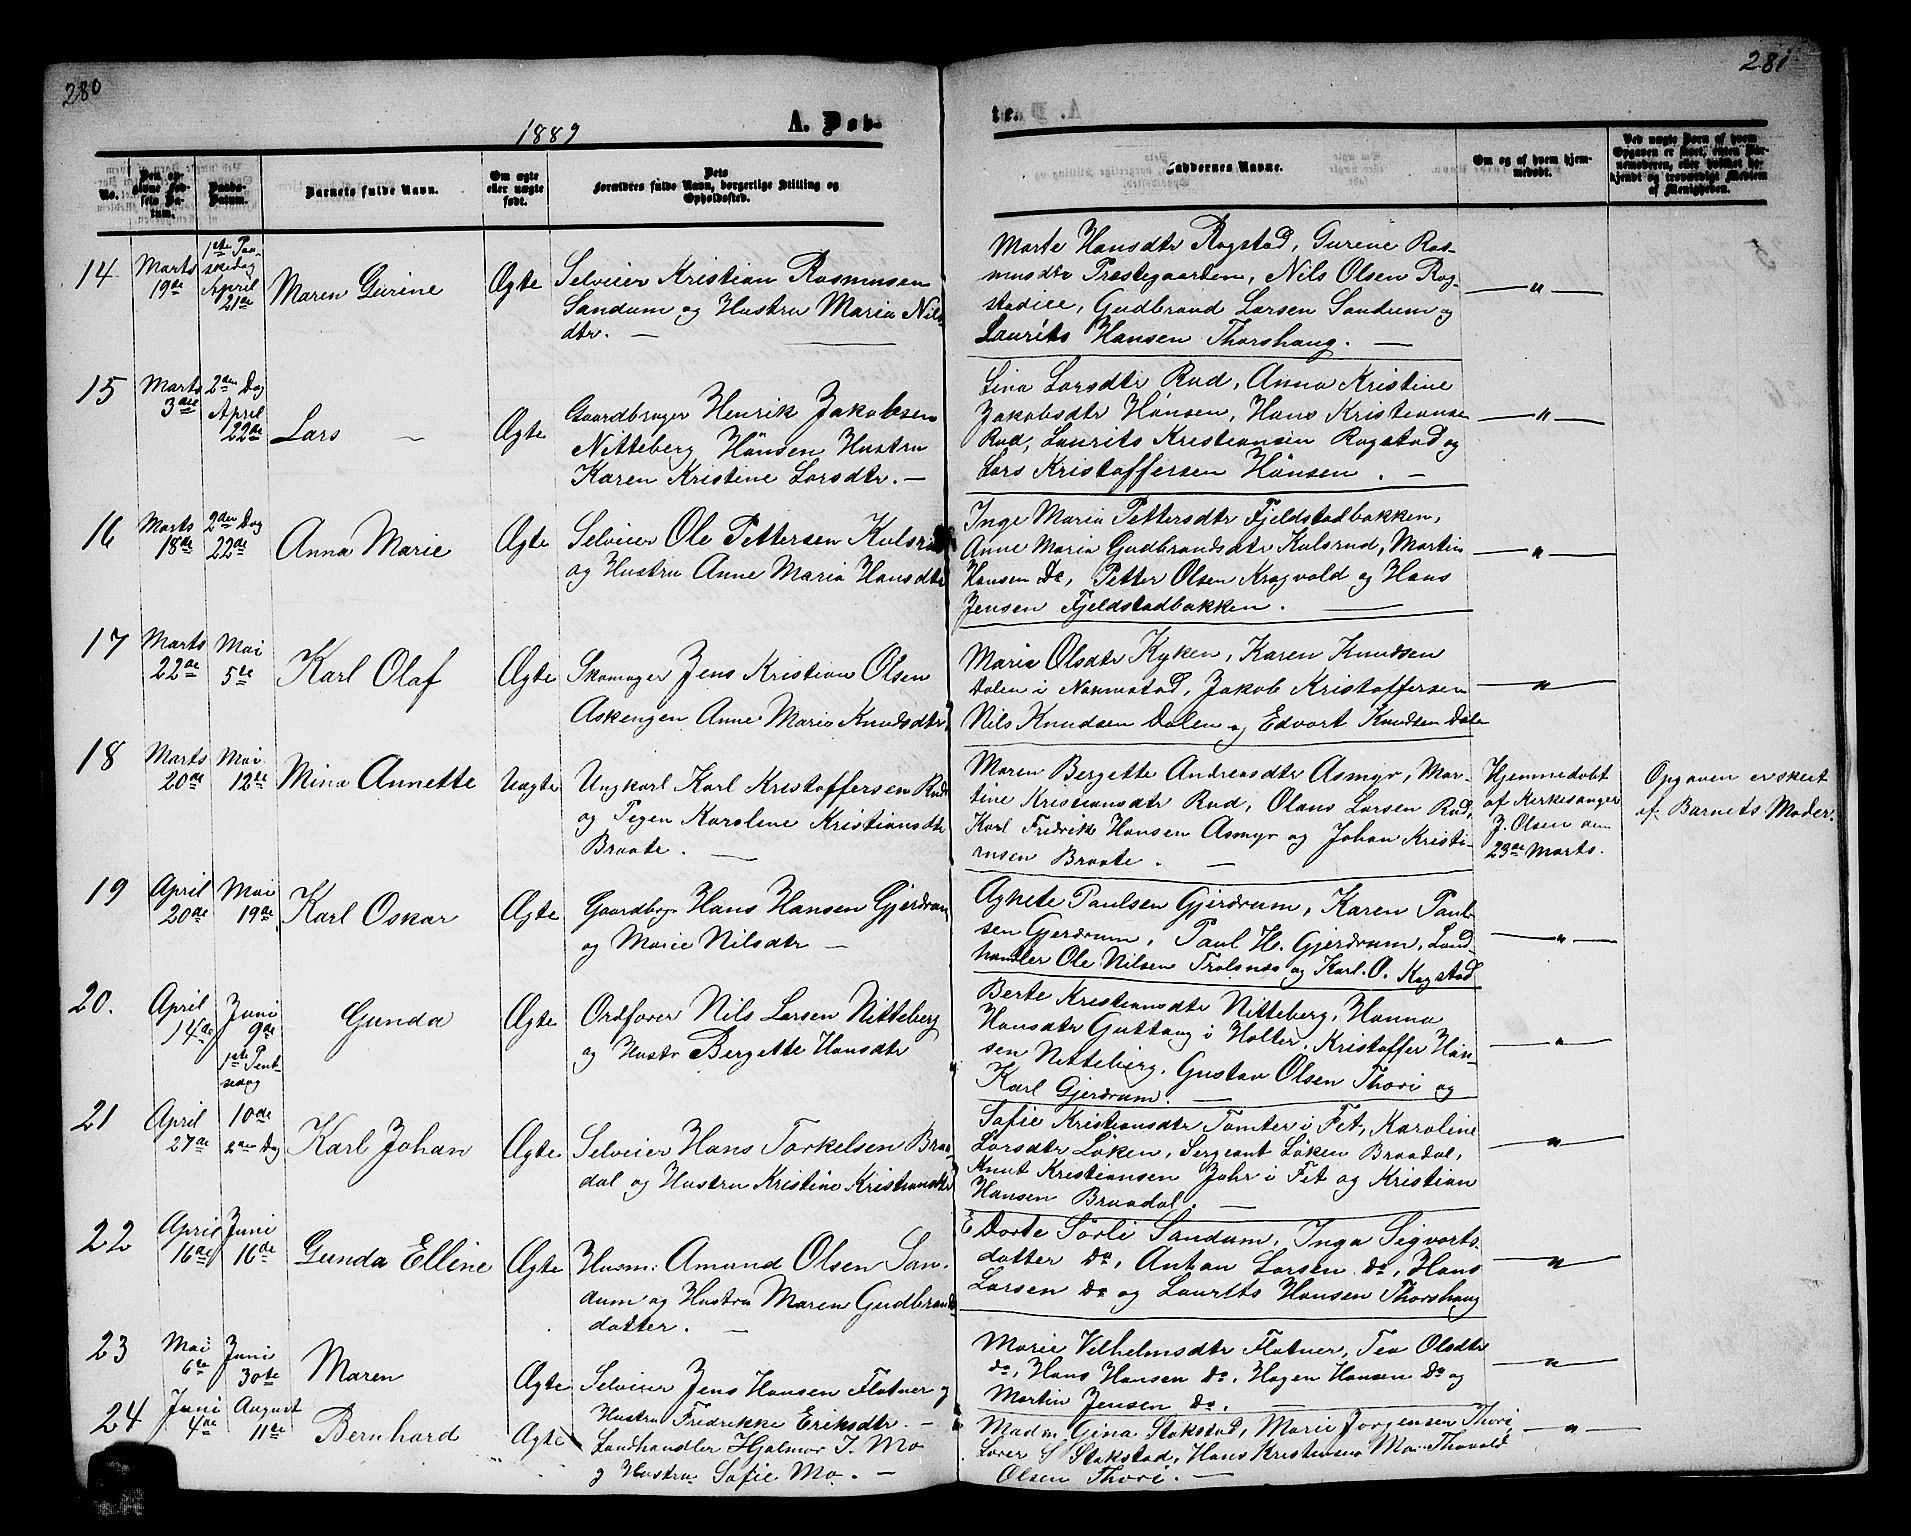 280
1889
A. Døb-
No.
Den opgivne Fødsels Datum.
Daabs-Datum.
Barnets fulde Navn.
Om ægte eller uægte født.
Dets
Forældres fulde Navn, borgerlige Stilling og
Opholdssted.
14
Marts
19de
1ste Paaskedag
April
21de
Maren Gurine
Ægte
Selveier Kristian Rasmusen
Sandum og Hustru Maria Nils
dtr. —
15
Marts
3die
2den Dag
April
22de
Lars —
Ægte
Gaardbruger Henrik Jakobsen
Nitteberg Hönsen Hustru
Karen Kristine Larsdtr. —
16
Marts
18de
2den Dag
22de
Anna Marie
Ægte
Selveier Ole Pettersen Kulsrud
og Hustru Anne Maria Hansdtr
17
Marts
22de
Mai
5te
Karl Olaf
Ægte
Skomager Jens Kristian Olsen
Askengen Anne Maria Knudsdtr.
18
Marts
20de
Mai
12te
Mina Annette
Uægte
Ungkarl Karl Kristoffersen Rud
og Pigen Karoline Kristiansdtr
Braate. —
19
April
20de
Mai
19de
Karl Oskar
Ægte
Gaardbrgr Hans Hansen Gjerdrum
og Marie Nilsdtr —
20.
April
14de
Juni
9de
1ste Pentsedag
Gunda
Ægte
Ordfører Nils Larsen Nitteberg
og Hustr Bergette Hansdtr
21
April
27de
10de
2den Dag
Karl Johan
Ægte
Selveier Hans Torkelsen Braa-
dal og Hustru Kristine Kristiansdtr
22
April
16de
Juni
16de
Gunda Elline
Ægte
Husm: Amund Olsen San-
dum og Hustru Maren Gudbrands
datter. —
23
Mai
6te
Juni
30te
Maren
Ægte
Selveier Jens Hansen Flatner og
Hustru Fredrikke Eriksdtr. —
24
Juni
4de
August
11te
Bernhard
Ægte
Landhandler Hjalmar J. Mo
og Hustru Sofie Mo. —
281
te.
Faddernes Navne.
Om og af hvem hjem-
medøbt.
Ved uægte Børn af hvem
Opgaven er skeet, enten Bar-
nemoderen, eller hvilket be-
kjendt og troværdigt Medlem
af Menigheden.
Marte Hansdtr Rogstad, Gurine Ras-
musdtr Præstegaarden, Nils Olsen Rog-
stadiee, Gudbrand Larsen Sandum og
Laurits Hansen Thorshaug. —
— " —
Lina Larsdtr Rud, Anna Kristine
Jakobsdtr Hönsen, Hans Kristianse
Rud, Laurits Kristiansen Rogstad og
Lars Kristoffersen Hönsen. —
— " —
Inge Maria Pettersdtr Fjeldstadbakken,
Anne Maria Gudbrandsdtr Kulsrud, Martin
Hansen Do, Petter Olsen Kragvold og Hans
Jensen Fjeldstadbakken. —
— " —
Maria Olsdtr Kyken, Karen Knudsen
Dalen i Nannestad, Jakob Kristoffersen
Nils Knudsen Dalen og Edvart Knudsen Dalen
— " —
Maren Bergette Andreasdtr Asmyr, Mar-
tine Kristiansdtr Rud, Olaus Larsen Rud,
Karl Fredrik Hansen Asmyr og Johan Kristi-
ansen Braate. —
Hjemmedøbt
af Kirkesanger
J. Olsen den
23de Marts.
Opgaven er skeet
af Barnets Moder.
Agnete Paulsen Gjerdrum, Karen Paul-
sen Gjerdrum, Paul H. Gjerdrum, Land-
handler Ole Nilsen Trolsnæs og Karl. O. Rogstad
— " —
Berte Kristiansdtr Nitteberg, Hanna
Hansdtr Guttaug i Holter, Kristoffer Han-
sen Nitteberg, Gustav Olsen Thori og
Karl Gjerdrum. —
— " —
Sofie Kristiansdtr Tomter i Fet, Karoline
Larsdtr Löken, Sergeant Löken Braadal,
Knut Kristiansen Jahr i Fet og Kristian
Hansen Braadal. —
— " —
E Dorte Sörli Sandum, Inga Sigvarts-
datter Do, Anton Larsen Do, Hans
Larsen Do og Laurits Hansen Thorshaug
— " —
Marie Vilhelmsdtr Flatner, Tea Olsdtr
Do, Hans Hansen Do, Hagen Hansen Do og
Martin Jensen Do. —
— " —
Madm Gina Stokstad, Marie Jørgensen Thori
Lærer S Stokstad, Hans Kristensen Mo Thorvald
Olsen Thori. —
— " —